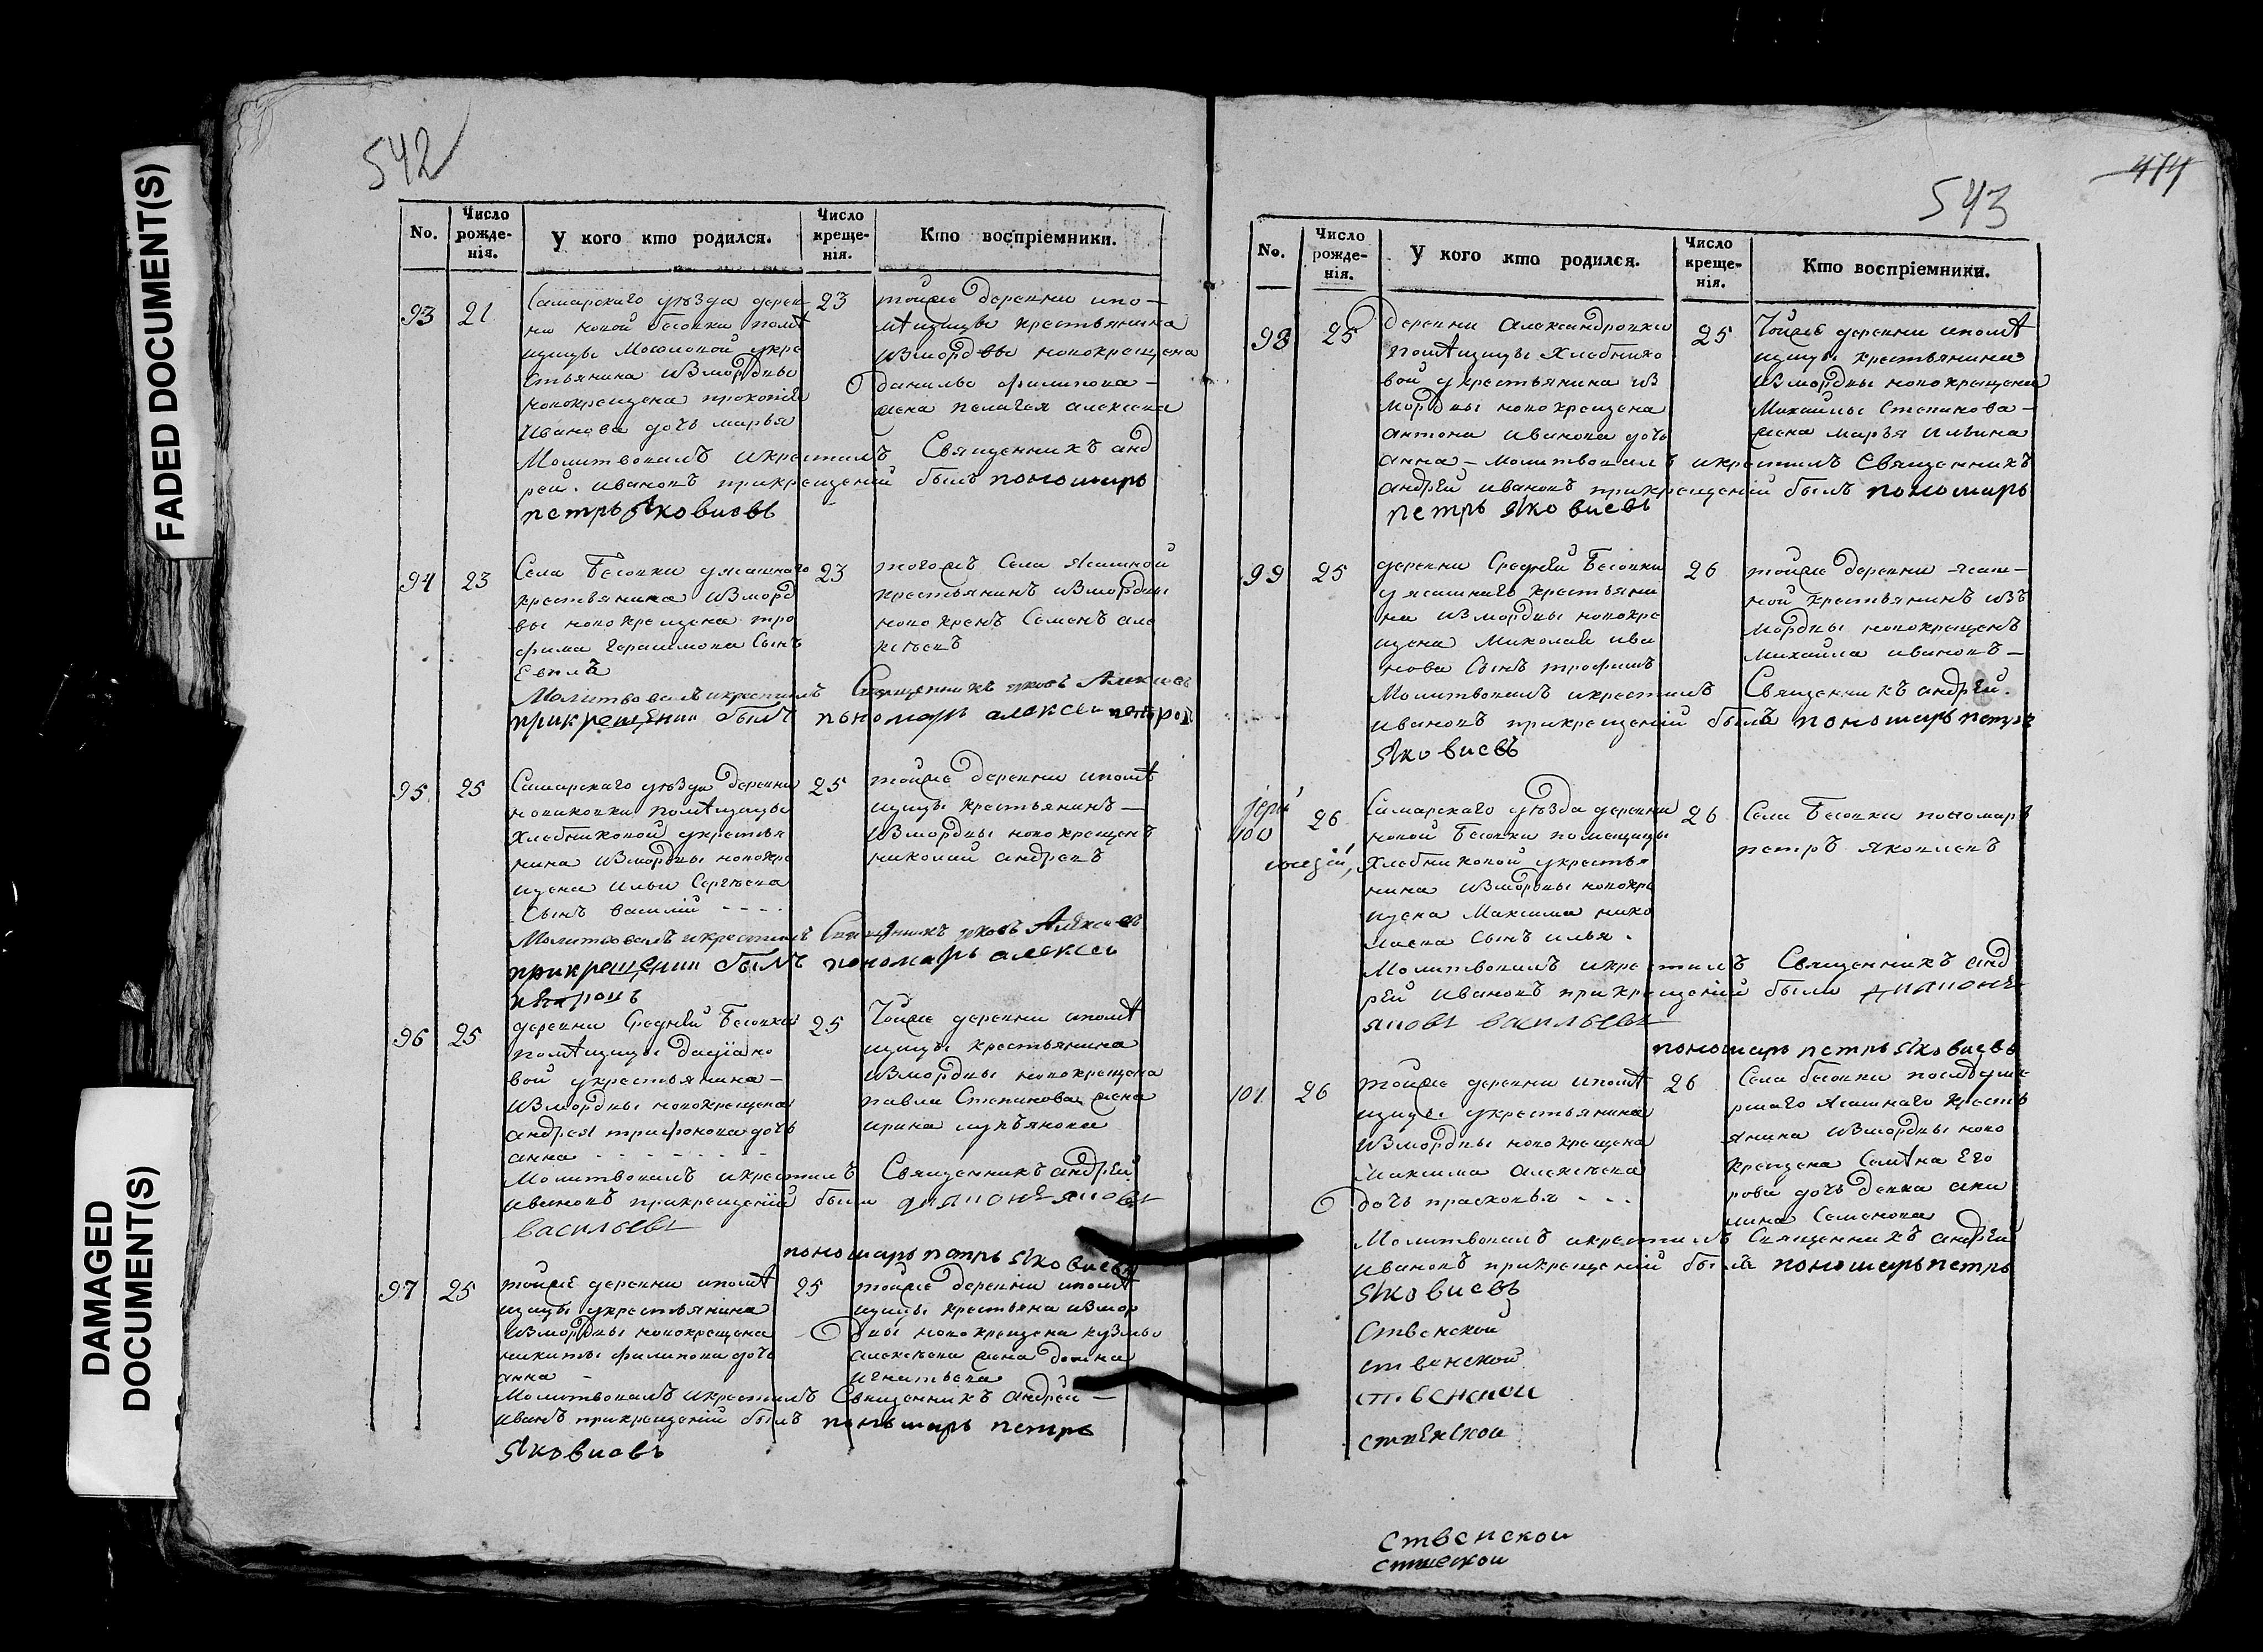 FADED DOCUMENT(S)
DAMAGED
DOCUMENT(S)
542
No.
Число рожде- нія.
У кого кто родился.
Число креще- нія.
Кто воспріемники.
93 21 23
Самарскаго уѣзда дерев
ни новой бесовки помѣ
щицы укре
стьянина измордвы
новокрещена прокопія
Иванова дочь марья
тойже деревни ипо—
мѣщицы крестьянина
измордвы новокрещена
данилы филипова—
жена пелагея алексева
Молитвовалъ икрестилъ Священникъ анд
рей ивановъ прикрещеніи былъ пономарь
петръ Яковлевъ
94 23 23
Села Бесовки уясашнаго
крестьянина изморд
вы новокрещена тро
фима герасимова Сынъ
тогожъ Села Ясашной
крестьянинъ измордвы
Семенъ але
ксѣевъ
Молитвовалъ икрестилъ Священникъ яковъ Алексѣевъ
прикрещении былъ пономарь алексеи петров
95 25 25
Самарскаго уѣзда деревни
новиковки помѣщицы
Хлебниковой укрестья
нина измордвы новокре
щена ильи Сергѣева
Сынъ василій - - - -
тойже деревни ипомѣ
щицы крестьянинъ—
измордвы новокрещенъ
николай андреевъ
Молитвовалъ икрестилъ Священникъ яковъ Алексѣевъ
прикрещении былъ пономарь алексеи
петровъ
96 25 25
деревни Средней Бесовки
помѣщицы
вой укрестьянина—
измордвы новокрещена
андрея трифонова дочь
анна - - - - - - - -
Тойже деревни ипомѣ
щицы крестьянина
измордвы новокрещена
павла Степанова жена
ирина лукьянова
Молитвовалъ икрестилъ Священникъ андрей
ивановъ прикрещеніи были диаконъ яковъ
васильевъ
пономарь петръ Яковлевъ
97 25 25
тойже деревни ипомѣ
щицы укрестьянина
измордвы новокрещена
никиты филипова дочь
анна -
тойже деревни ипомѣ
щицы крестьяна измор
двы новокрещена кузьмы
алексѣева жена домна
игнатьева
Молитвовалъ икрестилъ Священникъ андрей—
иванъ прикрещеніи былъ пономарь петръ
Яковлевъ
474
543
No.
Число рожде- нія.
У кого кто родился.
Число креще- нія.
Кто воспріемники.
98 25 25
деревни Александровки
помѣщицы Хлебнико
вой укрестьянина из
мордвы новокрещена
антона иванова дочь
Тойже деревни ипомѣ
щицы крестьянина
измордвы новокрещена
Михайлы Степанова—
жена марья ильина
анна — молитвовалъ икрестилъ Священникъ
андрей ивановъ прикрещеніи былъ пономарь
петръ Яковлевъ
99 25 26
деревни Средней Бесовки
уясашнаго крестьяни
на измордвы новокре
щена Миколай ива
нова Сынъ трофимъ
тойже деревни ясаш—
ной крестьянинъ изъ
мордвы новокрещенъ
Михайла ивановъ—
Молитвовалъ икрестилъ Священникъ андрей
ивановъ прикрещеніи былъ пономарь петръ
Яковлевъ
іерей
100 26 26
Самарскаго уѣзда деревни
новой Бесовки помещицы
Хлебниковой укрестья
нина измордвы новокре
щена Максима нико
лаева Сынъ илья.
Села Бесовки пономарь
петръ яковлевъ
Молитвовалъ икрестилъ Священникъ анд
рей ивановъ прикрещеніи были диаконъ
яковъ васильевъ
пономарь петръ Яковлевъ
101 26 26
тойже деревни ипомѣ
щицы укрестьянина
измордвы новокрещена
Максима алексѣева
дочь прасковья - - -
Села бесовки послѣуме
ршаго Ясашнаго кресть
янина измордвы ново
крещена Семѣна Его
рова дочь девка аки
лина Семенова
Молитвовалъ икрестилъ Священникъ андрей
ивановъ прикрещеніи былъ пономарь петръ
Яковлевъ
Ственской
ственской
ственской
ственской
ственской